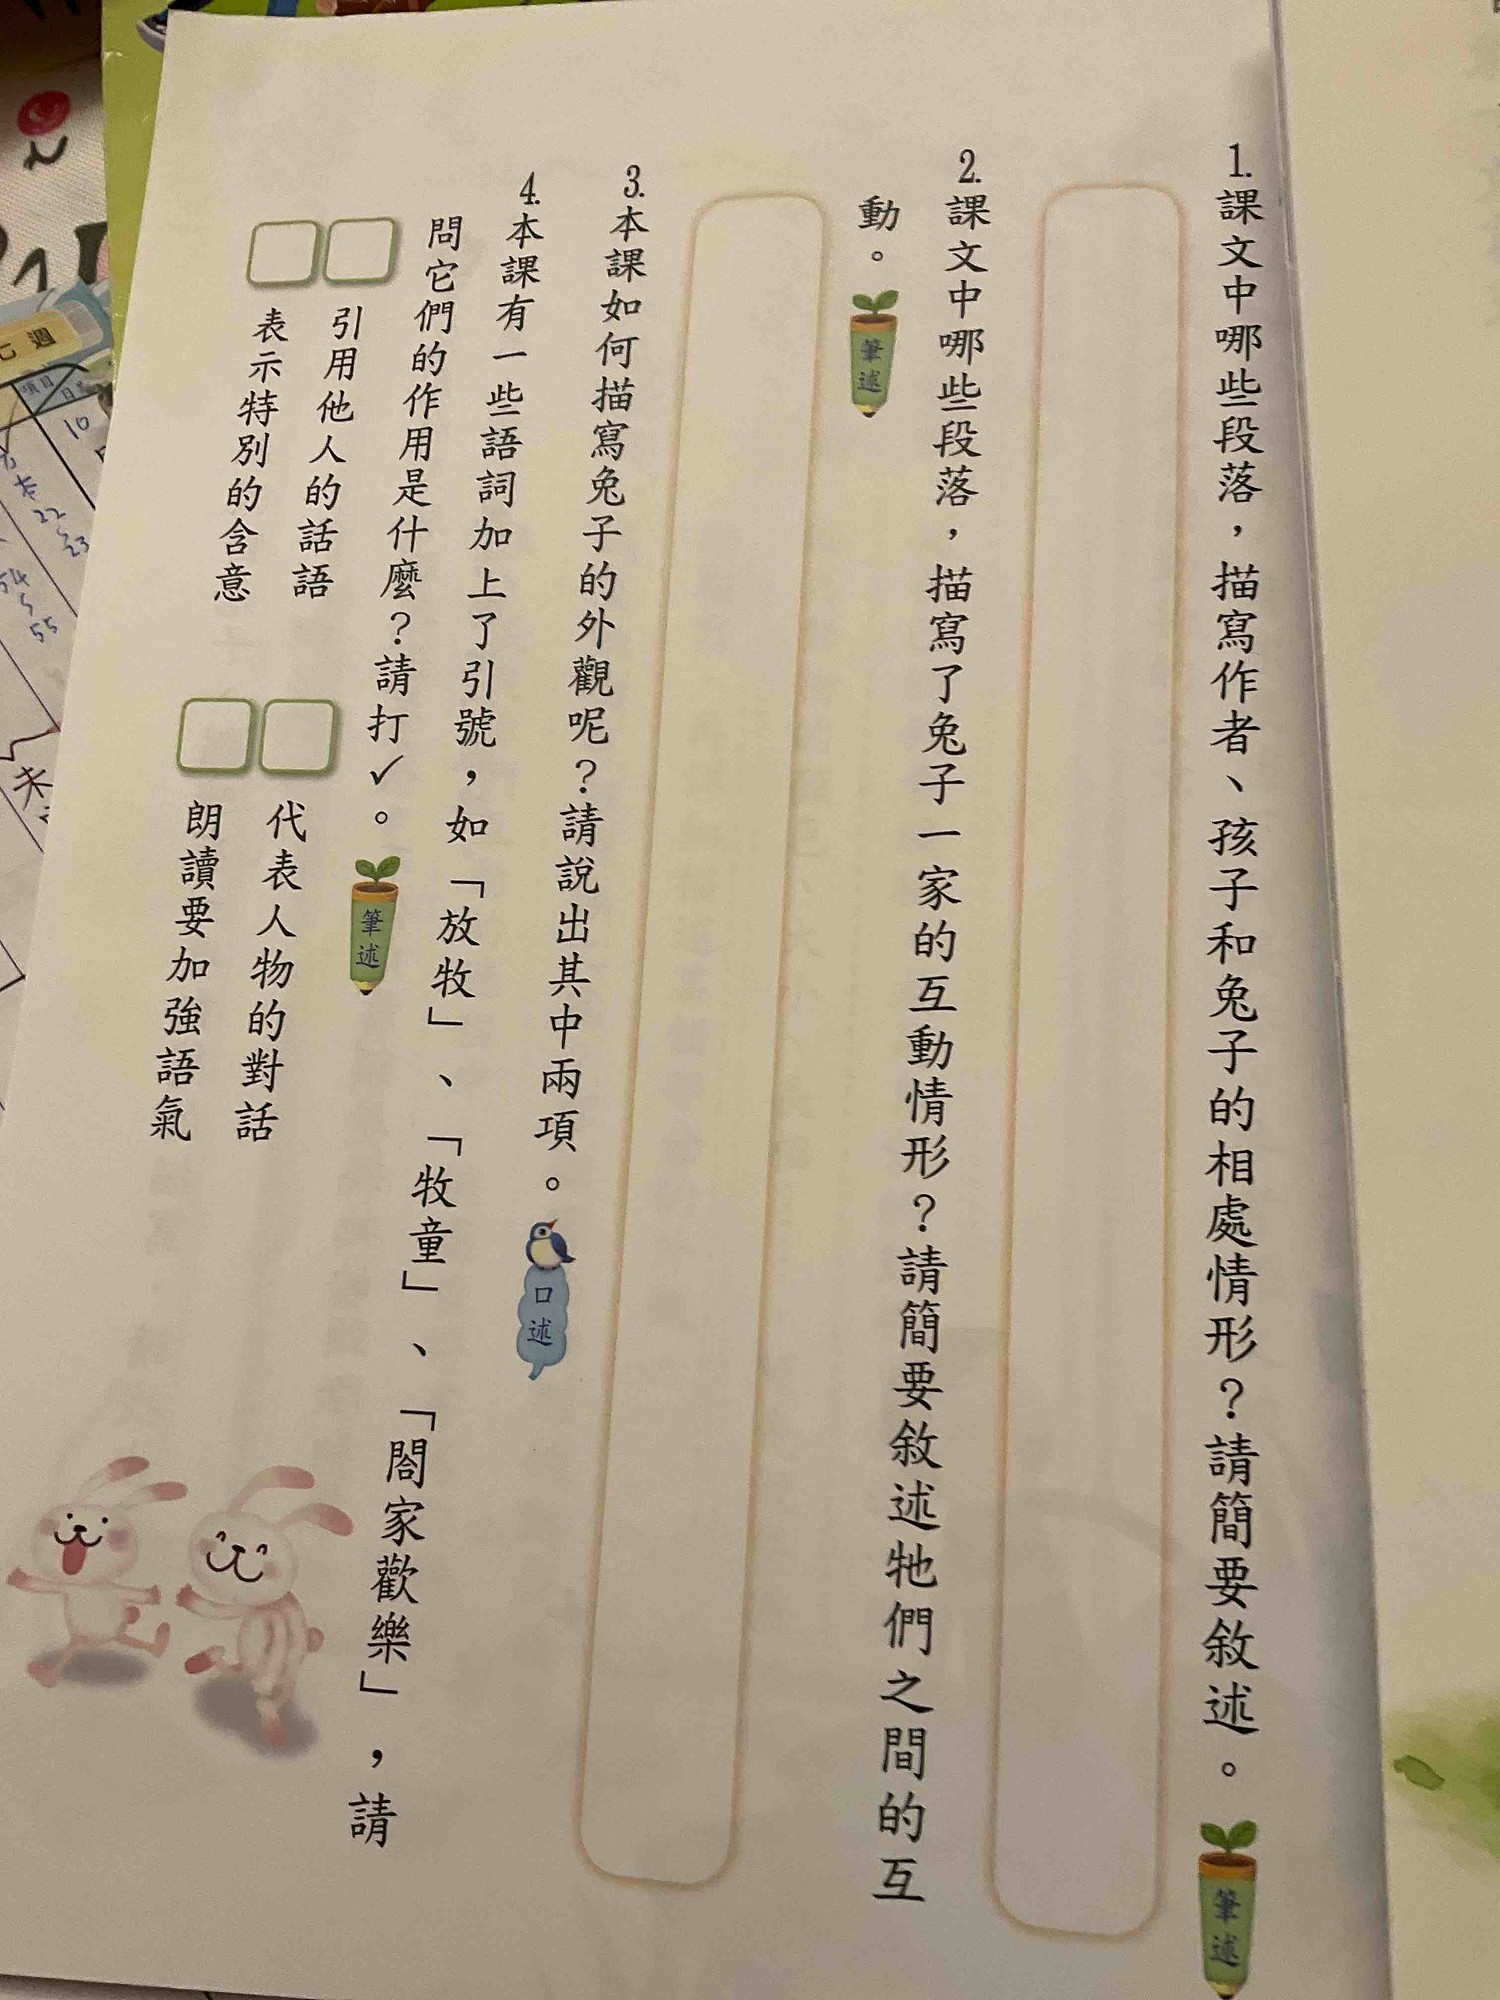 1.課文中哪些段落，描寫作者、孩子和兔子的相處情形？請簡要敘述。
筆述
2.課文中哪些段落，描寫了兔子一家的互動情形？請簡要敘述牠們之間的互
動。
筆述
3.本課如何描寫兔子的外觀呢？請說出其中兩項。
口述
4.本課有一些語詞加上了引號，如「放牧」、「牧童」、「閤家歡樂」，請
問它們的作用是什麼？請打✓。
筆述
引用他人的話語
代表人物的對話
表示特別的含意
朗讀要加強語氣
七週
項目
10
22
23
54
55